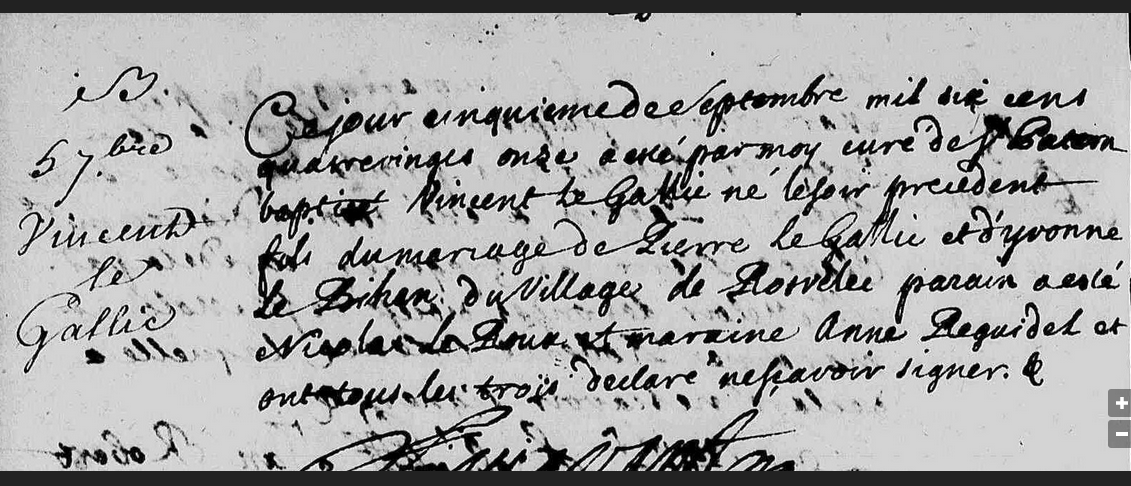 B.
5 7.bre
Vincent
le
Gallic
Ce jour cinquieme de Septembre mil six cens
quatrevingts onze a esté par moy curé de St Patern
baptisé Vincent Le Gallic né le soir precedent
fils du mariage de Pierre Le Gallic et d'yvonne
Le Bihan du Village de Rosvelec parain a esté
Nicolas Le Roux et maraine Anne Reguidel et
ont tous les trois declaré ne sçavoir signer. &